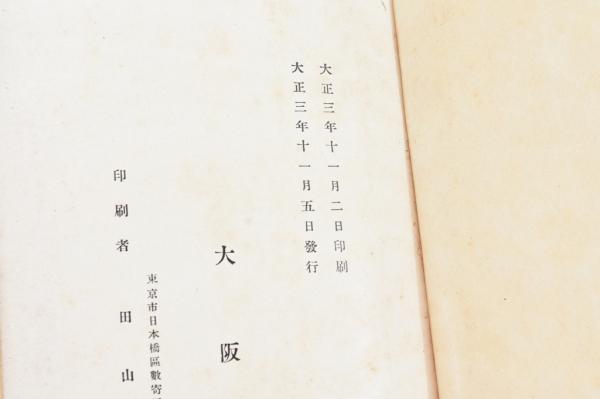 大正三年十一月二日印刷
大正三年十一月五日發行
大阪
東京市日本橋區數寄
印刷者 田山